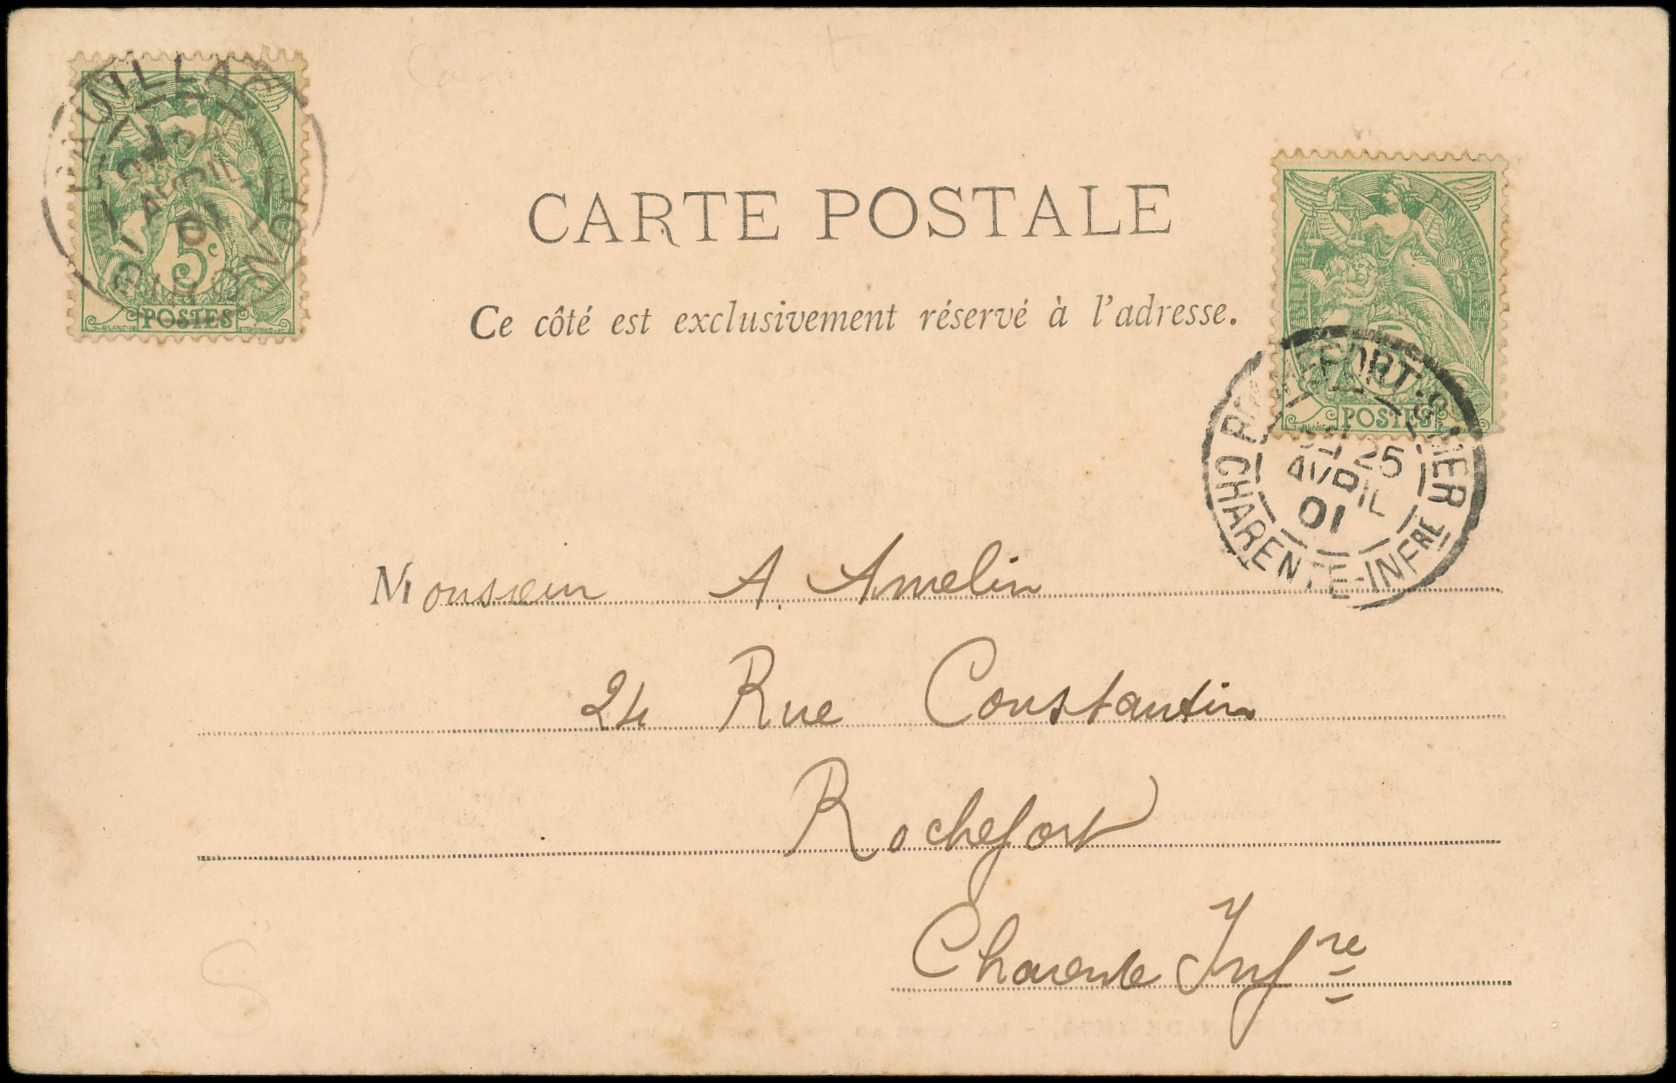 PAUILLAC
GIRONDE
AVRIL
01
5c
POSTES
CARTE POSTALE
Ce côté est exclusivement réservé à l'adresse.
POSTES
ROCHEFORT S. MER
25
AVRIL
01
CHARENTE-INFRE
Monsieur A. Amelin
24 Rue Constantin
Rochefort
Charente Infre